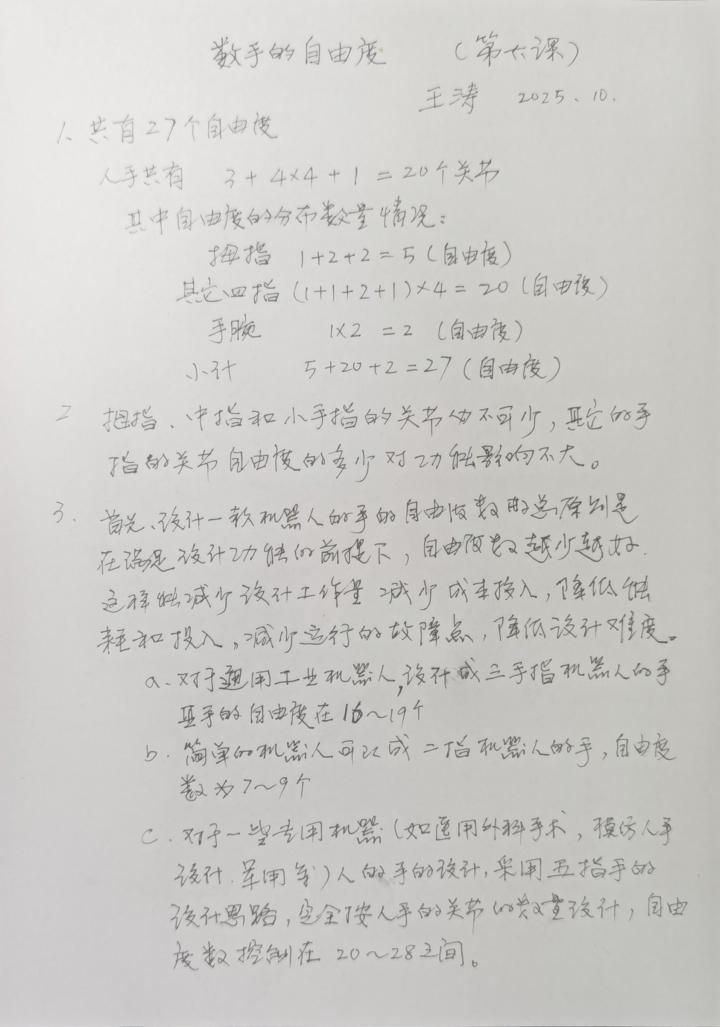 数手的自由度 （第六课）
王涛 2025.10.
1、共有27个自由度
人手共有 3+4×4+1=20个关节
其中自由度的分布数量情况：
拇指 1+2+2=5（自由度）
其它四指（1+1+2+1）×4=20（自由度）
手腕 1×2=2（自由度）
小计 5+20+2=27（自由度）
2 拇指、中指和小手指的关节必不可少，其它的手
指的关节自由度的多少对功能影响不大。
3. 首先、设计一款机器人的手的自由度数的总原则是
在满足设计功能的前提下，自由度数越少越好.
这样能减少设计工作量 减少成本投入，降低能
耗和投入，减少运行的故障点，降低设计难度。
a. 对于通用工业机器人，设计成三手指机器人的手
其手的自由度在16～19个
b. 简单的机器人可以成二指机器人的手，自由度
数为7～9个
c. 对于一些专用机器（如医用外科手术，模仿人手
设计.军用等）人的手的设计，采用五指手的
设计思路，完全按人手的关节的数量设计，自由
度数控制在20～28之间。